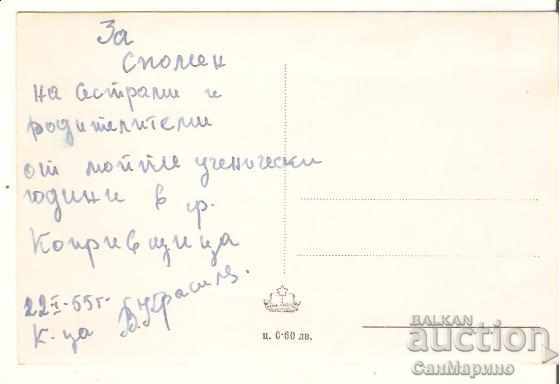 За
спомен
на сестрами и
родителите ми
от моите ученически
години в гр.
Копривщица
22-I-55г.
К-ца
ц. 0·60 лв.
BALKAN
auction
СанМарино